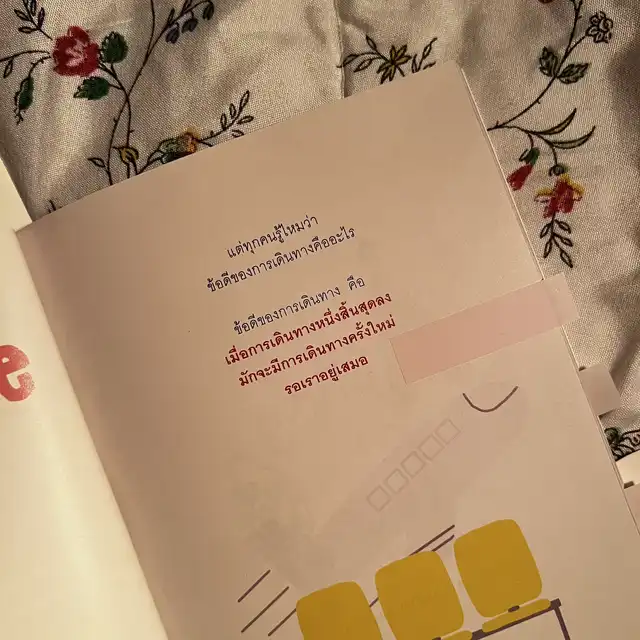 แต่ทุกคนรู้ไหมว่า
ข้อดีของการเดินทางคืออะไร
ข้อดีของการเดินทาง คือ
เมื่อการเดินทางหนึ่งสิ้นสุดลง
มักจะมีการเดินทางครั้งใหม่
รอเราอยู่เสมอ
e